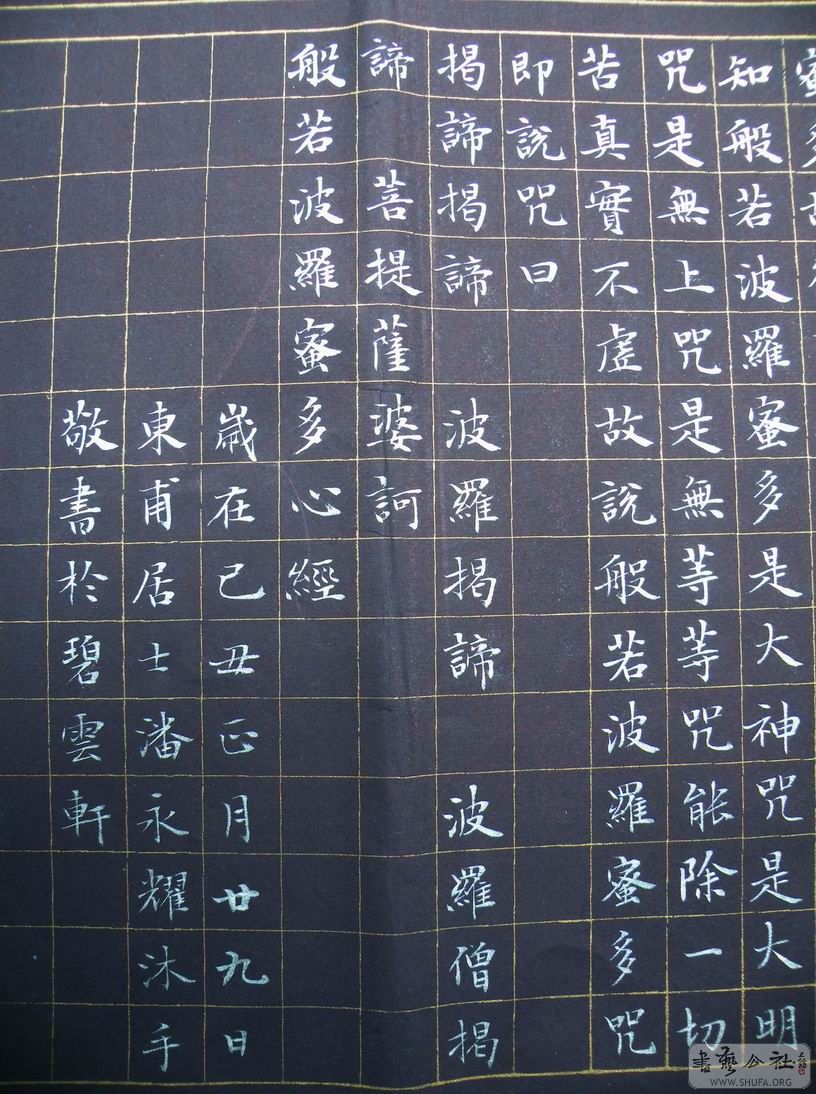 知般若波羅蜜多是大神咒是大明
咒是無上咒是無等等咒能除一切
苦真實不虛故說般若波羅蜜多咒
即說咒曰
揭諦揭諦 波羅揭諦 波羅僧揭
諦 菩提薩婆訶
般若波羅蜜多心經
歲在己丑正月廿九日
東甫居士潘永耀沐手
敬書於碧雲軒
書藝公社
WWW.SHUFA.ORG